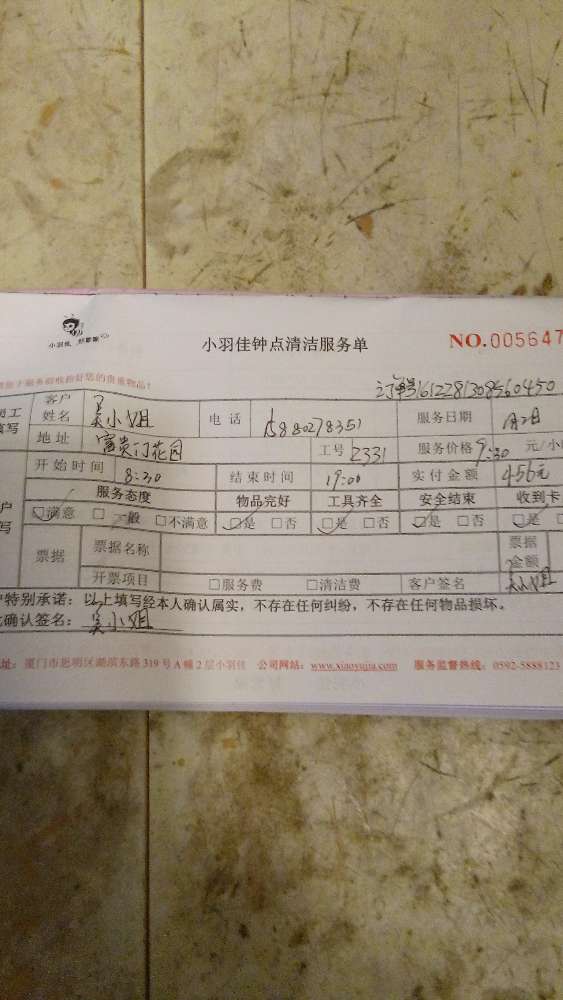 小羽佳钟点清洁服务单 NO.005647
订单号612281308560450
客户姓名 吴小姐 电话 15880278351 服务日期
填写 地址 富贵门花园 工号 2331 服务价格 元/小
开始时间 8:30 结束时间 19:00 实付金额 456元
服务态度 物品完好 工具齐全 安全结束 收到卡
☑满意 □一般 □不满意 ☑是 □否 ☑是 □否 ☑是 □否 ☑是
票据 票据名称 票据金额
开票项目 □服务费 □清洁费 客户签名 吴小姐
特别承诺：以上填写经本人确认属实，不存在任何纠纷，不存在任何物品损坏。
确认签名：吴小姐
址：厦门市思明区湖滨东路319号A幢2层小羽佳 公司网站：www.xiaoyujia.com 服务监督热线：0592-5888123